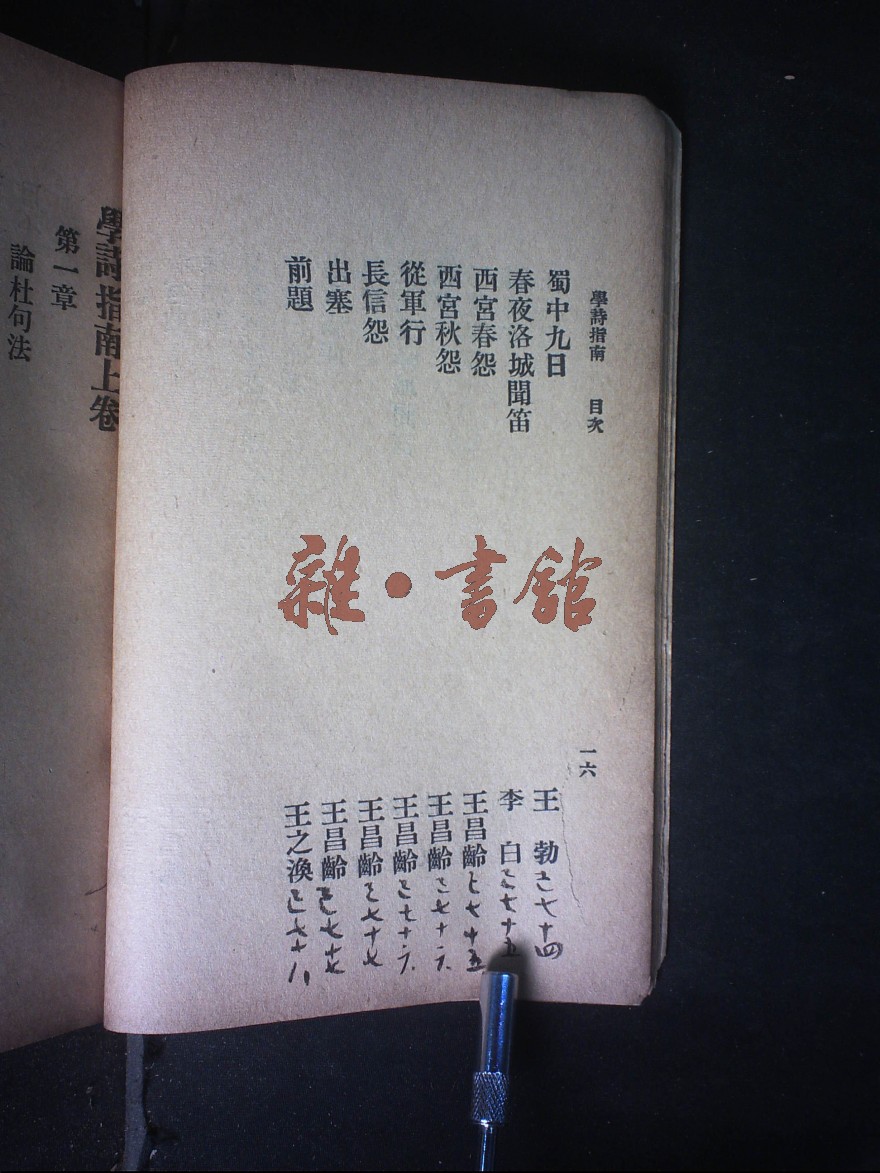 學詩指南 目次 一六
蜀中九日 王勃 七十四
春夜洛城聞笛 李白 七十五
西宮春怨 王昌齡 七十五
西宮秋怨 王昌齡 七十六
從軍行 王昌齡 七十六
長信怨 王昌齡 七十七
出塞 王昌齡 七十七
前題 王之渙 七十八
雜·書館
學詩指南上卷
第一章
論杜句法